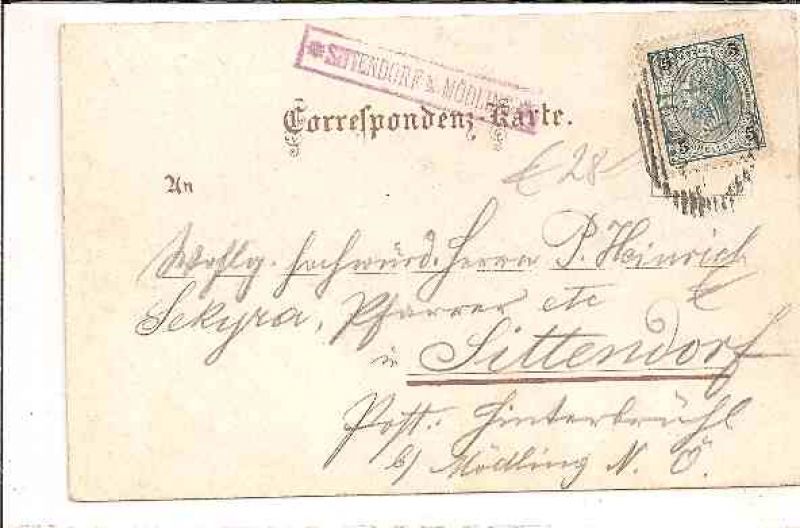 SITTENDORF b. MÖDLING
Correspondenz-Karte.
5 5
5 5
€ 28
An
Wohlg. hochwürd. Herrn P. Heinrich
Sekyra, Pfarrer etc
in Sittendorf
Post: Hinterbrühl
b/ Mödling N. Ö.